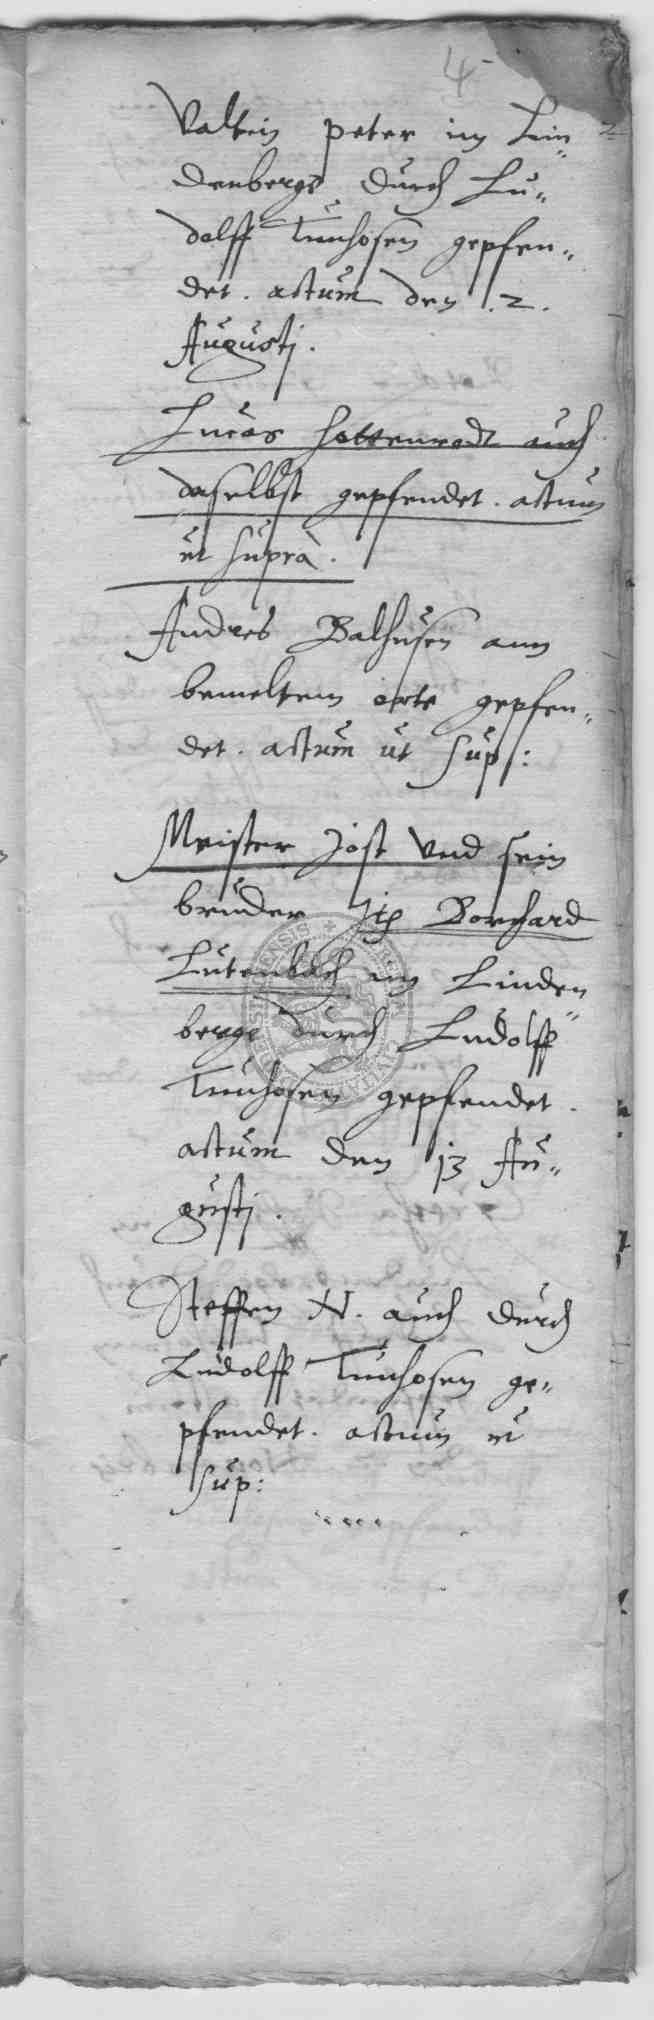 4
Valtin peter im Lin„
denberge durch Lu„
dolff Tunhosen gepfen„
det. actum den .2.
Augustj.
Lucas Hottenrodt auch
daselbst gepfendet. actum
ut suprà.
Andres Balhusen ann
bemeltem orte gepfen„
det. actum ut sup:
Meister Jost vnd sein
bruder Borchard
Lutenbach im Linden„
berge durch Ludolff
Tunhosen gepfendet.
actum den 13 Au„
gustj.
Steffen N. auch durch
Ludolff Tunhosen ge„
pfendet. actum ut
sup: